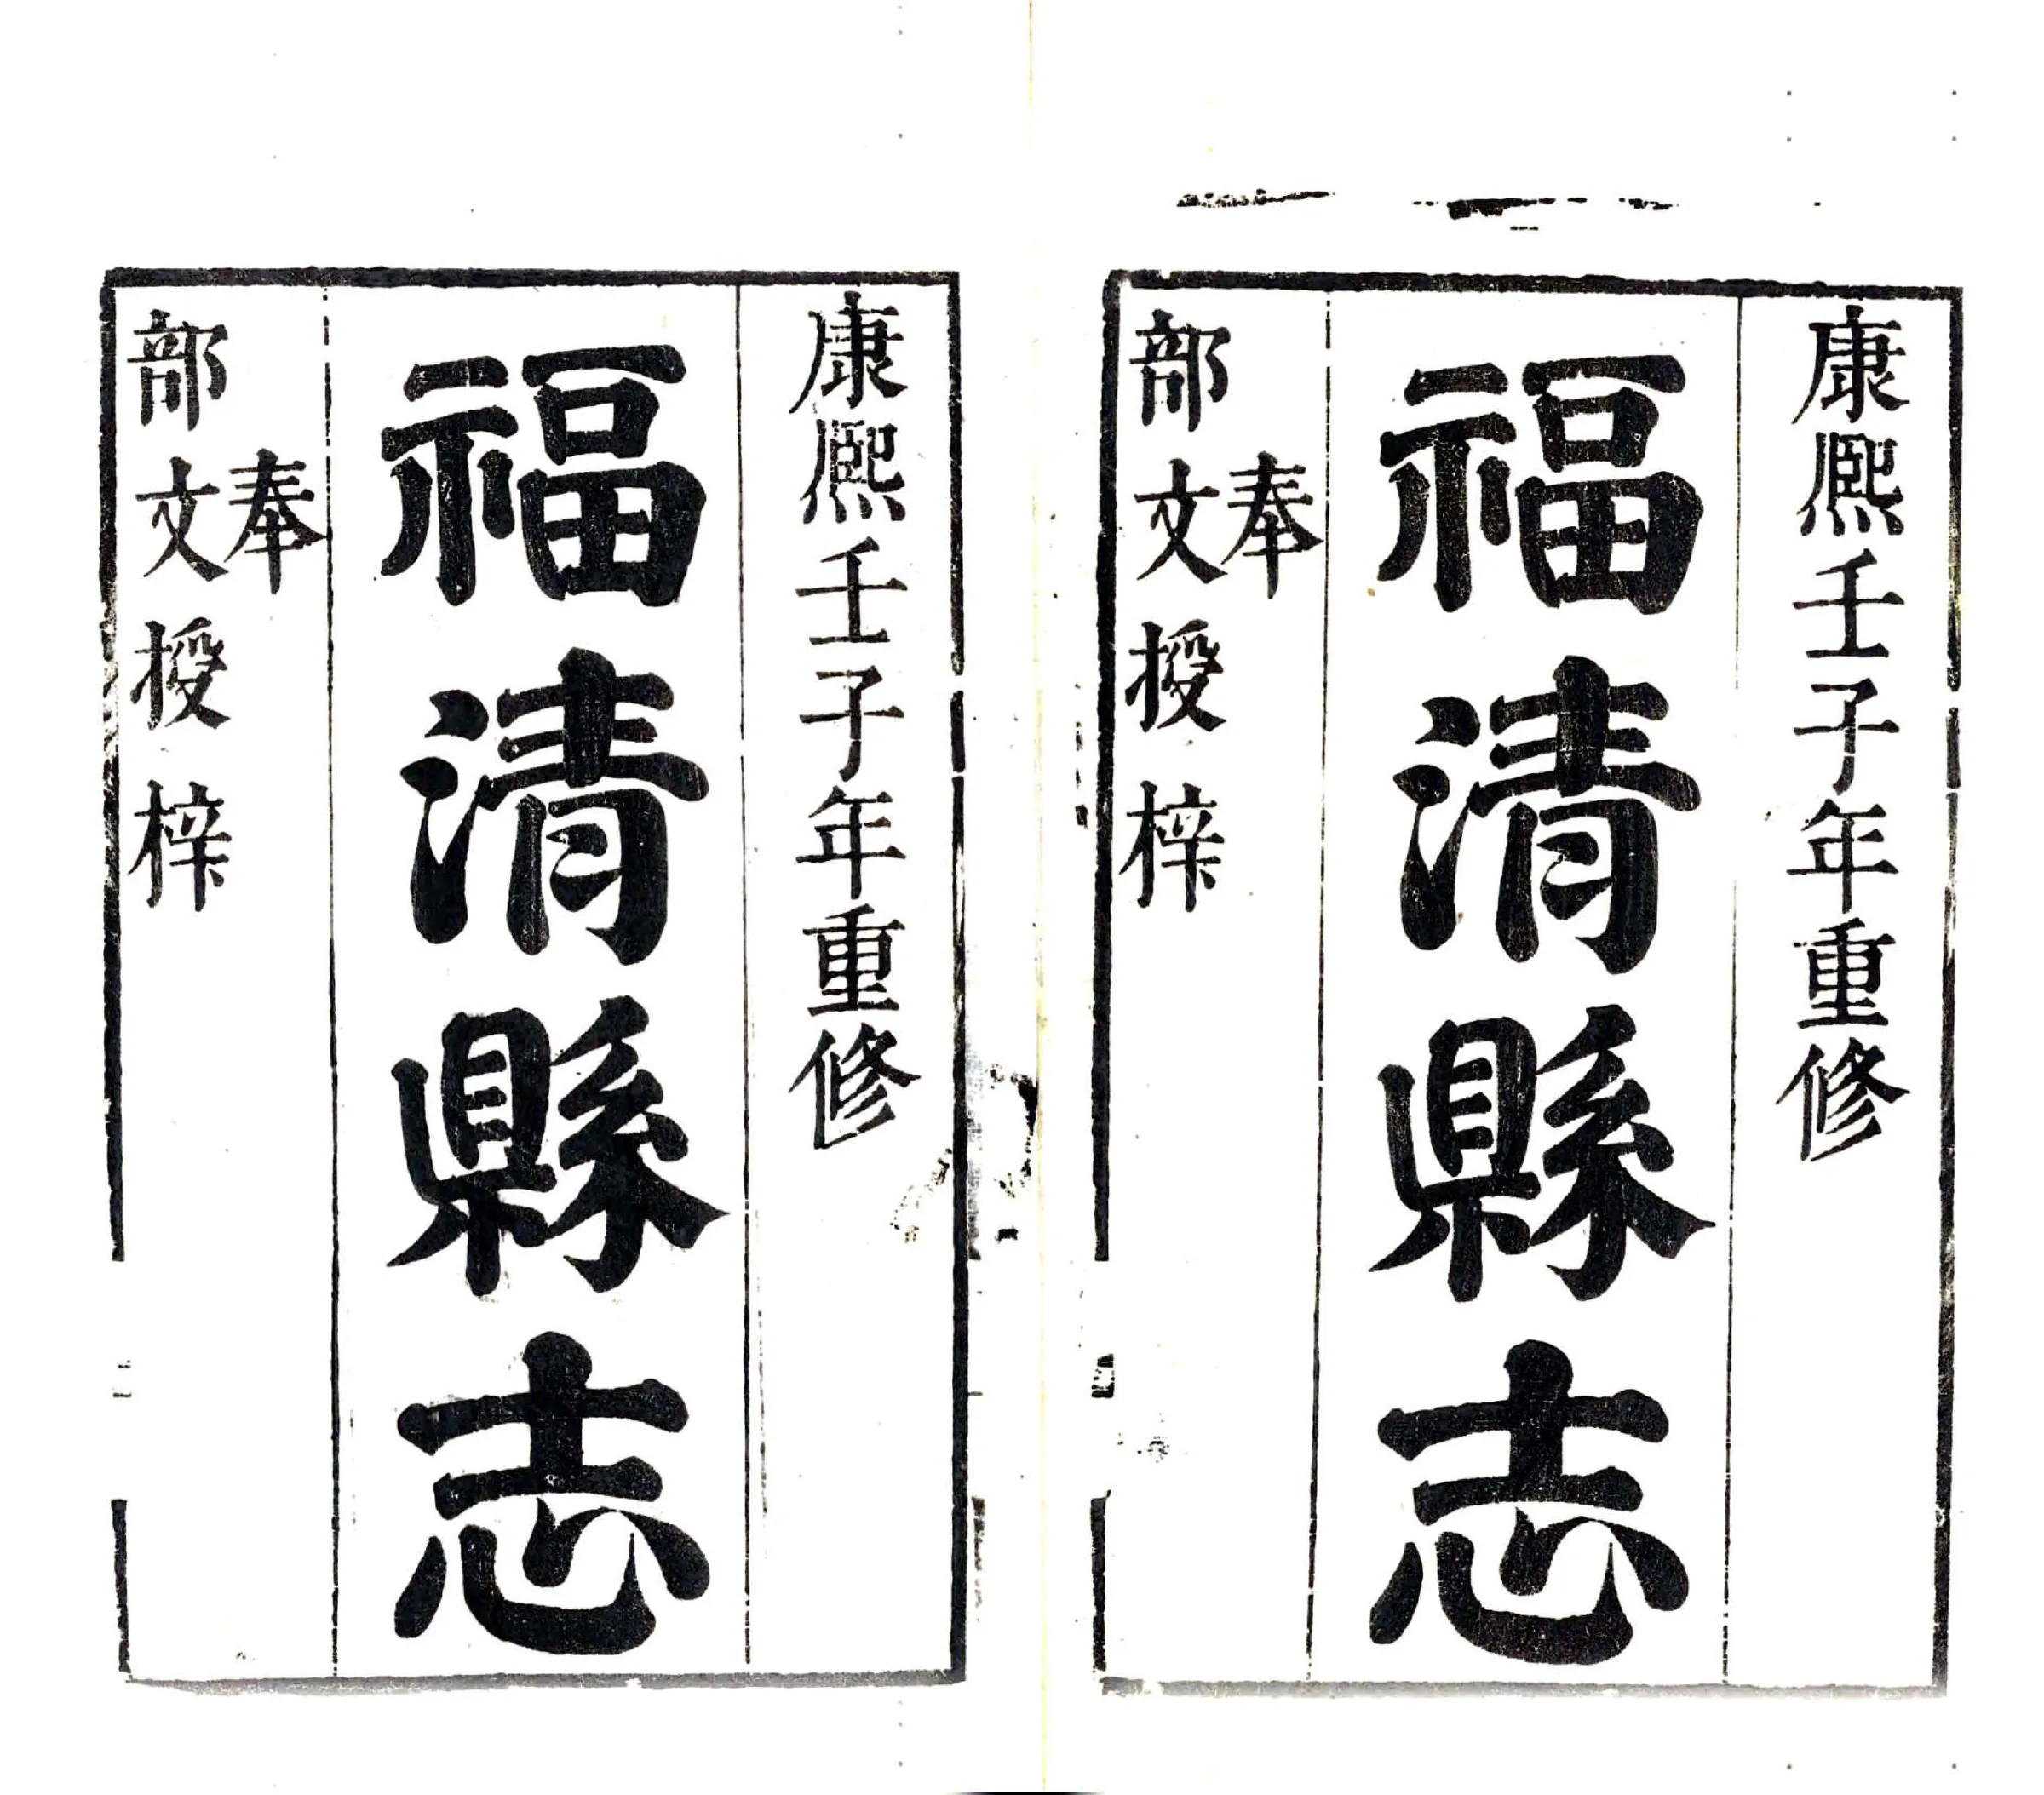 康熙壬子年重修
福清縣志
奉
部文授梓
康熙壬子年重修
福清縣志
奉
部文授梓